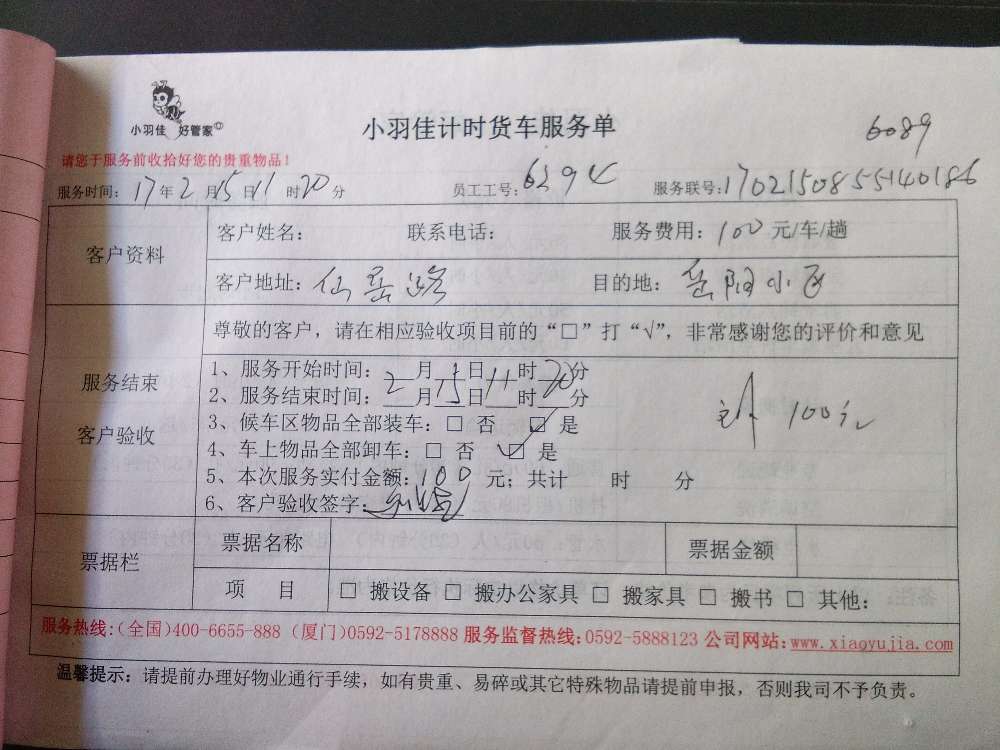 小羽佳 好管家
小羽佳计时货车服务单
6089
请您于服务前收拾好您的贵重物品!
服务时间: 17年2月15日11时20分 员工工号: 6294 服务联号: 1702150855140186
客户资料
客户姓名: 联系电话: 服务费用: 100元/车/趟
客户地址: 仙岳路 目的地: 岳阳小区
服务结束
客户验收
尊敬的客户，请在相应验收项目前的“□”打“√”，非常感谢您的评价和意见
1、服务开始时间: 2月15日11时20分
2、服务结束时间: 月 日 时 分
3、候车区物品全部装车: □ 否 □ 是
4、车上物品全部卸车: □ 否 ☑ 是
5、本次服务实付金额: 100 元; 共计 时 分
6、客户验收签字:
100元
票据栏
票据名称 票据金额
项 目 □ 搬设备 □ 搬办公家具 □ 搬家具 □ 搬书 □ 其他:
服务热线:(全国)400-6655-888 (厦门)0592-5178888 服务监督热线:0592-5888123 公司网站:www.xiaoyujia.com
温馨提示: 请提前办理好物业通行手续，如有贵重、易碎或其它特殊物品请提前申报，否则我司不予负责。